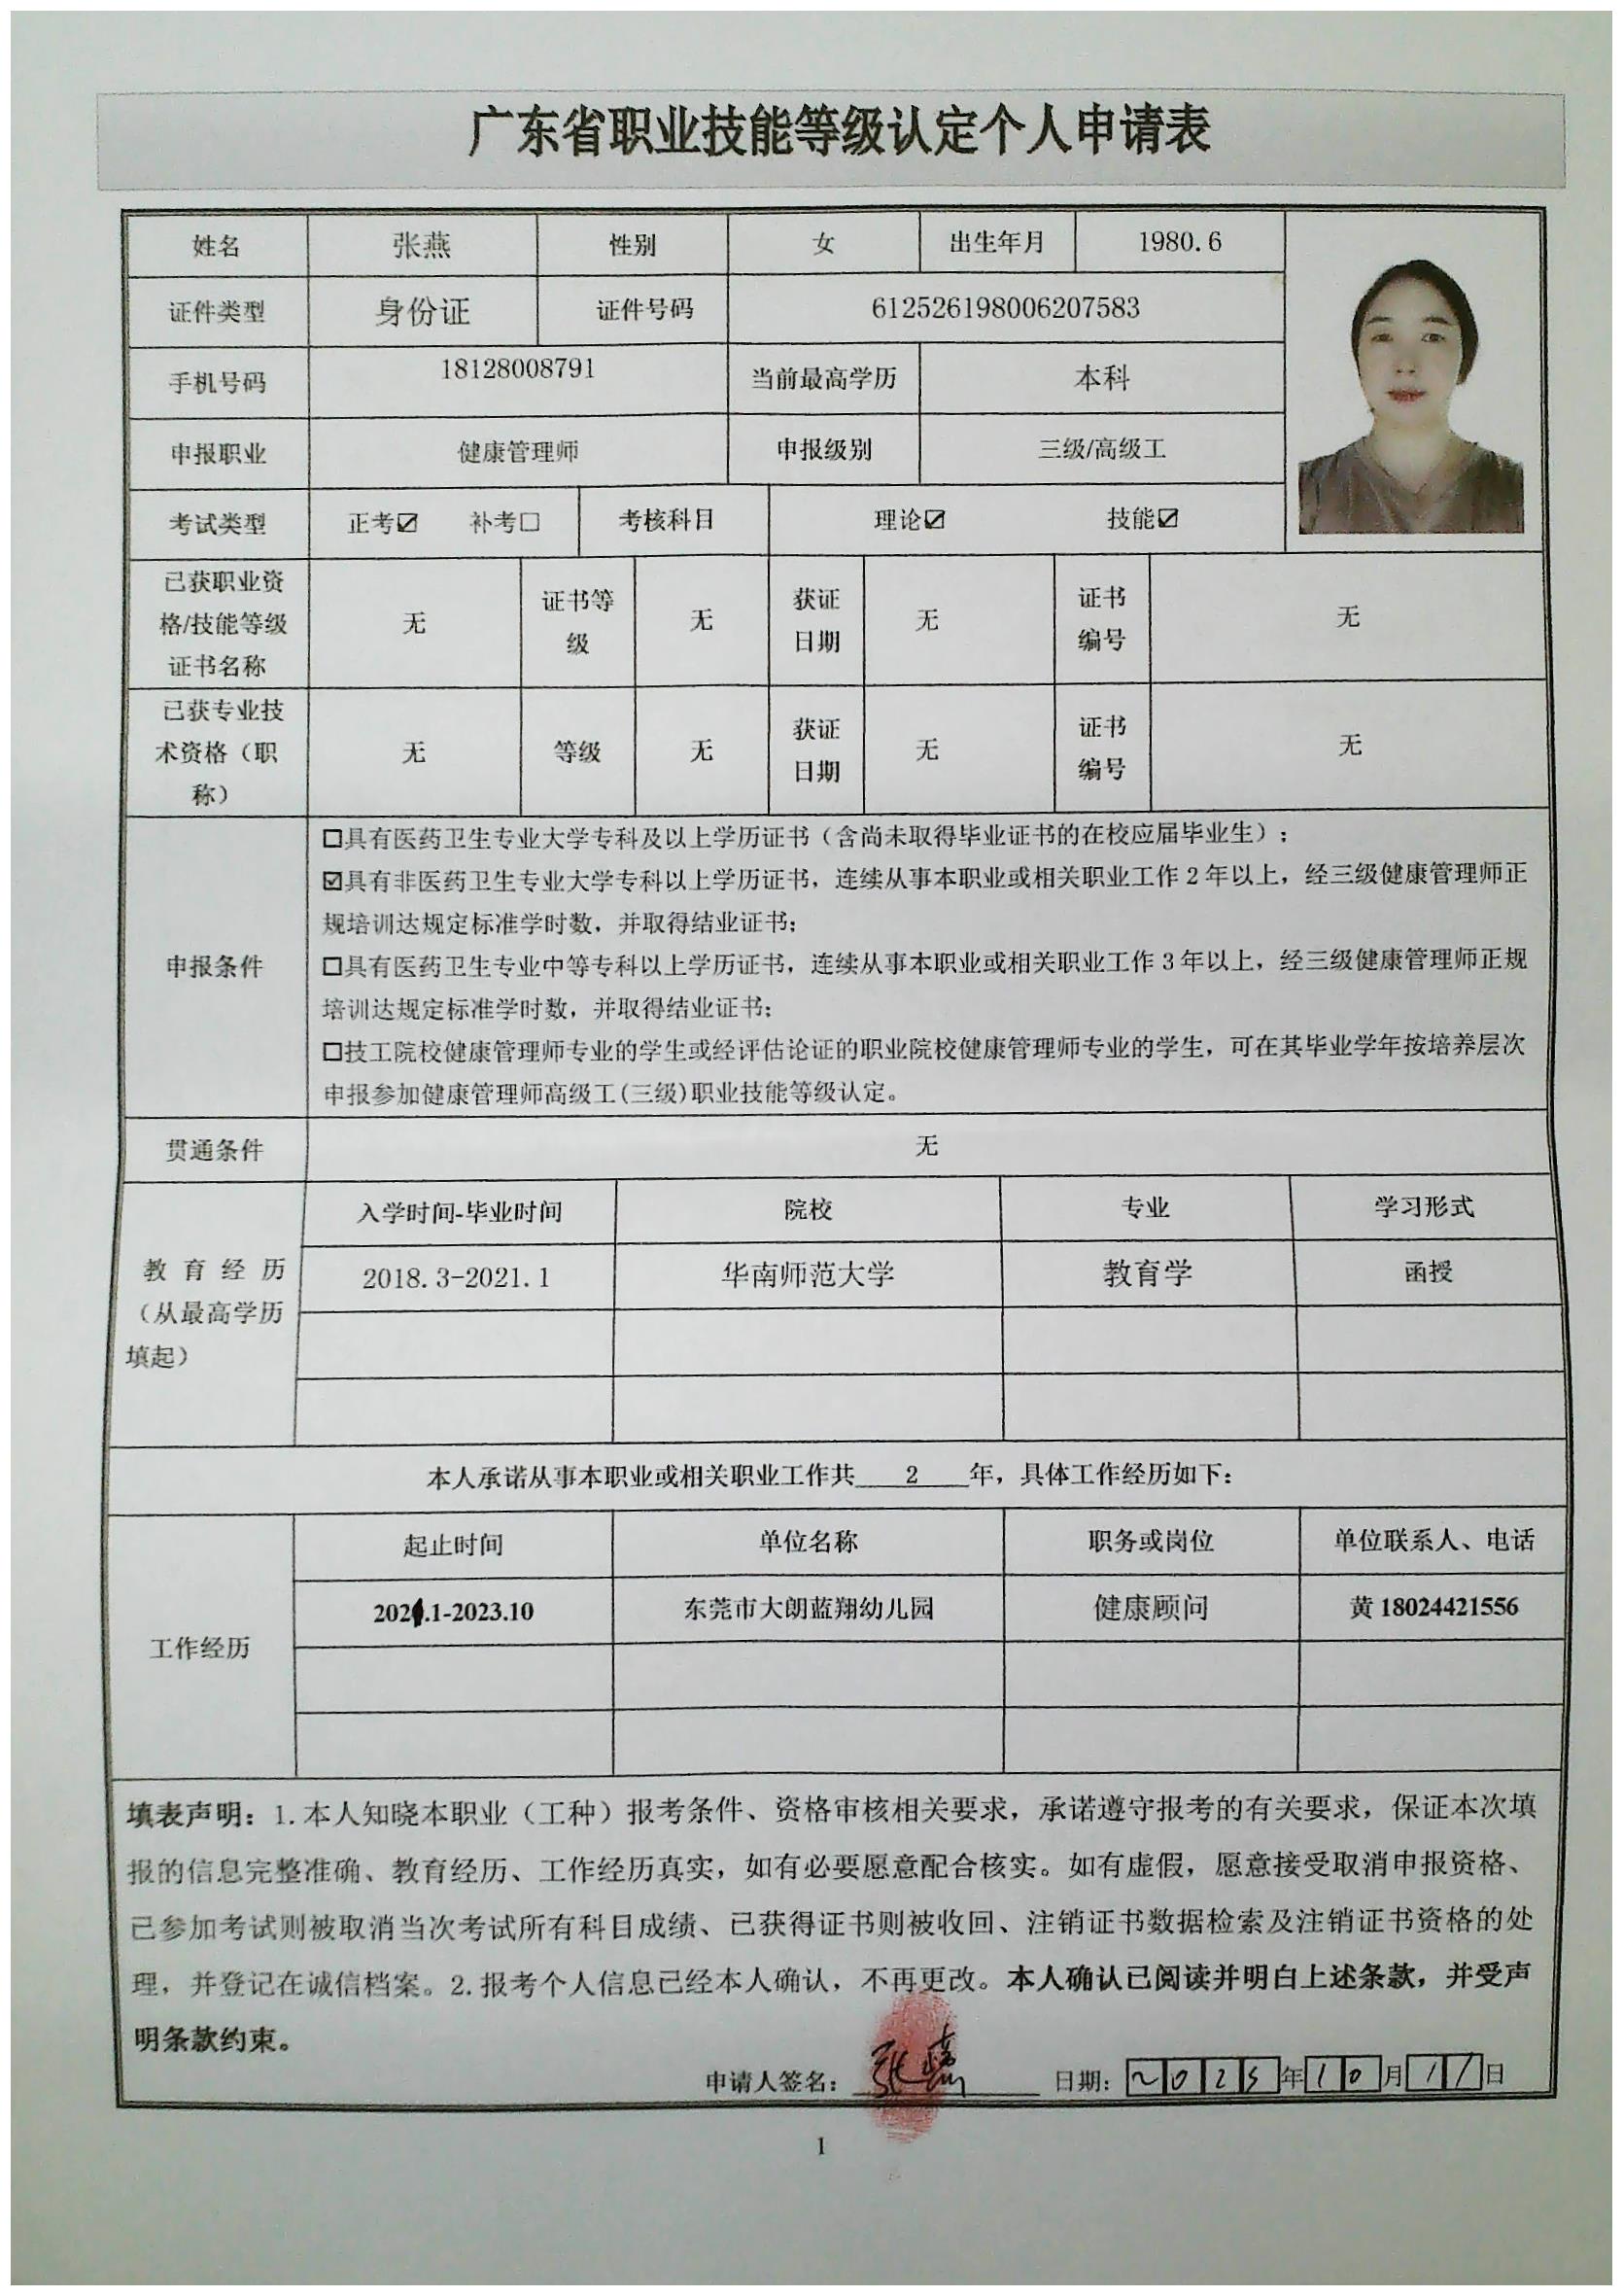 广东省职业技能等级认定个人申请表
姓名 张燕 性别 女 出生年月 1980.6
证件类型 身份证 证件号码 612526198006207583
手机号码 18128008791 当前最高学历 本科
申报职业 健康管理师 申报级别 三级/高级工
考试类型 正考☑ 补考☐ 考核科目 理论☑ 技能☑
已获职业资格/技能等级证书名称 无 证书等级 无 获证日期 无 证书编号 无
已获专业技术资格（职称） 无 等级 无 获证日期 无 证书编号 无
申报条件
☐具有医药卫生专业大学专科及以上学历证书（含尚未取得毕业证书的在校应届毕业生）；
☑具有非医药卫生专业大学专科以上学历证书，连续从事本职业或相关职业工作 2 年以上，经三级健康管理师正
规培训达规定标准学时数，并取得结业证书；
☐具有医药卫生专业中等专科以上学历证书，连续从事本职业或相关职业工作 3 年以上，经三级健康管理师正规
培训达规定标准学时数，并取得结业证书；
☐技工院校健康管理师专业的学生或经评估论证的职业院校健康管理师专业的学生，可在其毕业学年按培养层次
申报参加健康管理师高级工(三级)职业技能等级认定。
贯通条件 无
教育经历（从最高学历填起）
入学时间-毕业时间 院校 专业 学习形式
2018.3-2021.1 华南师范大学 教育学 函授
本人承诺从事本职业或相关职业工作共 2 年，具体工作经历如下：
工作经历
起止时间 单位名称 职务或岗位 单位联系人、电话
2021.1-2023.10 东莞市大朗蓝翔幼儿园 健康顾问 黄 18024421556
填表声明：1.本人知晓本职业（工种）报考条件、资格审核相关要求，承诺遵守报考的有关要求，保证本次填
报的信息完整准确、教育经历、工作经历真实，如有必要愿意配合核实。如有虚假，愿意接受取消申报资格、
已参加考试则被取消当次考试所有科目成绩、已获得证书则被收回、注销证书数据检索及注销证书资格的处
理，并登记在诚信档案。2.报考个人信息已经本人确认，不再更改。本人确认已阅读并明白上述条款，并受声
明条款约束。
申请人签名：张燕 日期：2025年10月11日
1